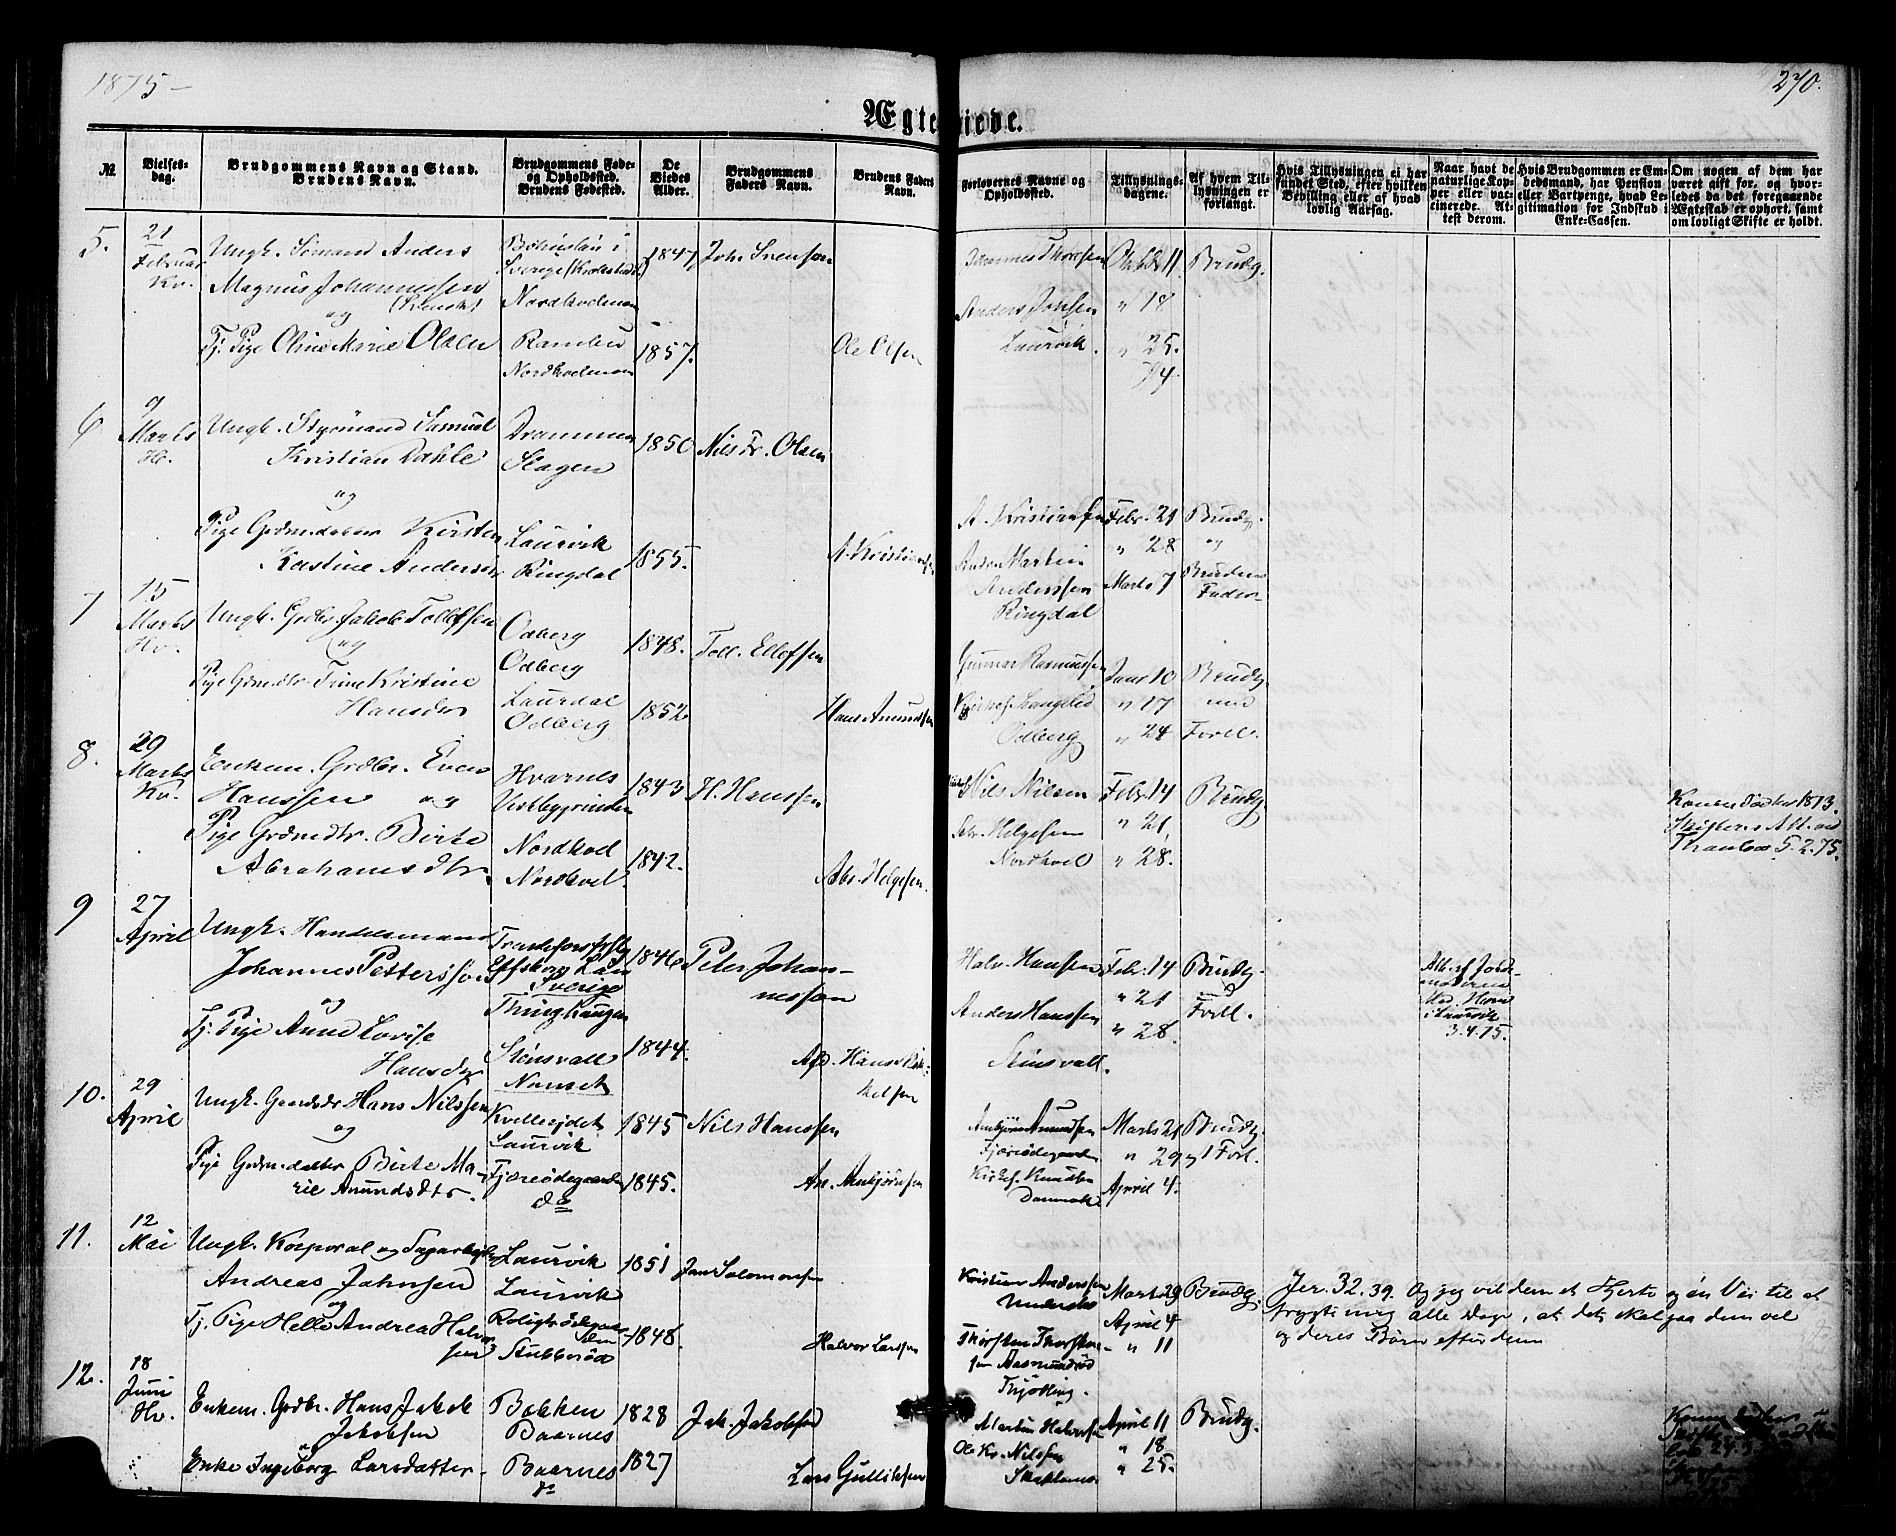 1875 –
270.
Ægteviede.
№
Vielses-
dag.
Brudgommens Navn og Stand.
Brudens Navn.
Brudgommens Føde-
og Opholdssted.
Brudens Fødested.
De
Viedes
Alder.
Brudgommens
Faders Navn.
Brudens Faders
Navn.
Forlovernes Navne og
Opholdssted.
Tillysnings-
dagene.
Af hvem Til-
lysningen er
forlangt.
Hvis Tillysningen ei har
fundet Sted, efter hvilken
Bevilling eller af hvad
lovlig Aarsag.
Naar havt de
naturlige Kop-
per eller vac-
cinerede. At-
test derom.
Hvis Brudgommen er Em-
bedsmand, har Pension
eller Vartpenge, hvad Le-
gitimation for Indskud i
Enke-Cassen.
Om nogen af dem har
været gift før, og hvor-
ledes da det foregaaende
Ægtestad er ophørt, samt
om lovligt Skifte er holdt.
5.
21
Februar
Kv.
Ungk. Sømand Anders
Magnus Johannessen
(Svensk)
og
Tj. Pige Oline Marie Olsen
Bohuslän i
Sverige
Nordhodman
Ramlev
Nordhodman
1847
1857.
Joh. Svenson
Ole Olsen
Johannes Thorsen
Anders Jonsen
Laurvik.
Oktbr 11
" 18
" 25.
74.
Brudg.
6
9
Marts
Hv.
Ungk. Styrmand Samuel
Kristian Dahle
og
Pige Grdmdatter Kirsten
Kastine Andersdr
Drammen
Slagen
Laurvik
Ringdal
1850
1855.
Nils Fr. Olsen
A. Kristiansen
A. Kristiansen
Andr. Martin
Anderssen
Ringdal
Febr. 21
" 28
Marts 7
Brudg.
og
Brudens
Fader
7
15
Marts
Hv.
Ungk. Grdbr. Jakob Tollefsen
og
Pige Grdmdtr Trine Kristine
Hansdr
Odberg
Odberg
Laurdal
Odberg
1848.
1852.
Toll. Ellefsen
Hans Amundsen
Gunnar Rasmussen
Odberg
Janr 10
" 17
" 24
Brudg.
med
Forl.
8.
29
Marts
Kv.
Enkem. Grdbr. Even
Hanssen og
Pige Grdmdtr. Birte
Abrahamsdtr.
Hvarnes
Vestbygrinden
Nordhvel
Nordhvel.
1843
1842.
H. Hanssen
Abr. Helgesen.
Nils Nilsen
Helgesen
Nordhvel
Febr 14
" 21,
" 28.
Brudg
Konen død 1873.
Skifter. Att. ved
5.2.75.
9
27
April
Ungk. Handelsmand
Johannes Petterson
og
Tj. Pige Anne Lovise
Hansdr
Elfsborg Län
Sverige
Thinghaugen
Stensvall
Nanset
1846
1844.
Peter Johan-
nesson
Hans
kelsen
Halv. Hansen
Anders Hanssen
Stensvall.
Febr. 14
" 21
" 28.
Brudg.
Forl.
Att. af Jord-
moderen
Mad. Horn
i Laurvik
3.4.75.
10.
29
April
Ungk. Hans Nilssen
og
Pige Grdmdatter Birte Ma-
rie Amundsdtr.
Kvellesjdet
Laurvik
Fjæreødegaarden
do
1845
1845.
Nils Hanssen
Am. Anbjørnsen
Anbjørn Amundsen
Fjæreødegaarden
Knudsen
Marts 21
" 29
April 4.
Brudg.
og Forl.
11.
12
Mai
Ungk. Korporal og Sagarbeider
Andreas Jahnsen
og
Tj. Pige Helle Andrea Halvor
sen
Laurvik
Laurvik
Roligh. ødegaar
den
Stubberød
1851
1848.
Jan Salomonsen
Halvor Larssen
Kristian Anderssen
Thorsten Thorsten-
sen Aasmundrød
Thjølling.
Marts 29
April 4
" 11
Brudg.
Jer. 32. 39. Og jeg vil dem et Hjerte og én Vei til at
frygte mig alle Dage, at det skal gaa dem vel
og deres Børn efter dem
12.
18
Juni
Hv.
Enkem. Grdbr. Hans Jakob
Jakobsen
og
Enke Ingeborg Larsdatter.
Bakken
Baarnes
Baarnes
do
1828
1827
Jak. Jakobsen
Lars Gulliksen
Martin Halvorsen
Ole Kr. Nilssen
April 11
" 18
" 25.
Brudg.